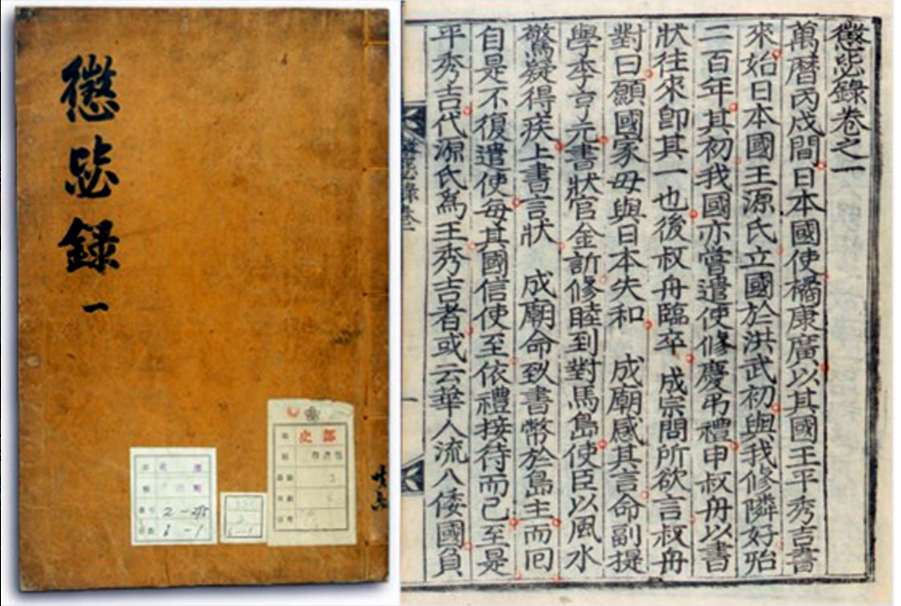 懲毖錄 一
史部
6-1
懲毖錄卷之一
萬曆丙戌間日本國使橘康廣以其國王平秀吉書
來始日本國王源氏立國於洪武初與我修隣好殆
二百年其初我國亦嘗遣使修慶弔禮申叔舟以書
狀往來卽其一也後叔舟臨卒 成宗問所欲言叔舟
對曰願國家毋與日本失和 成廟感其言命副提
學李亨元書狀官金訢修睦到對馬島使臣以風水
驚疑得疾上書言狀 成廟命致書幣於島主而回
自是不復遣使每其國信使至依禮接待而已至是
平秀吉代源氏爲王秀吉者或云華人流入倭國負